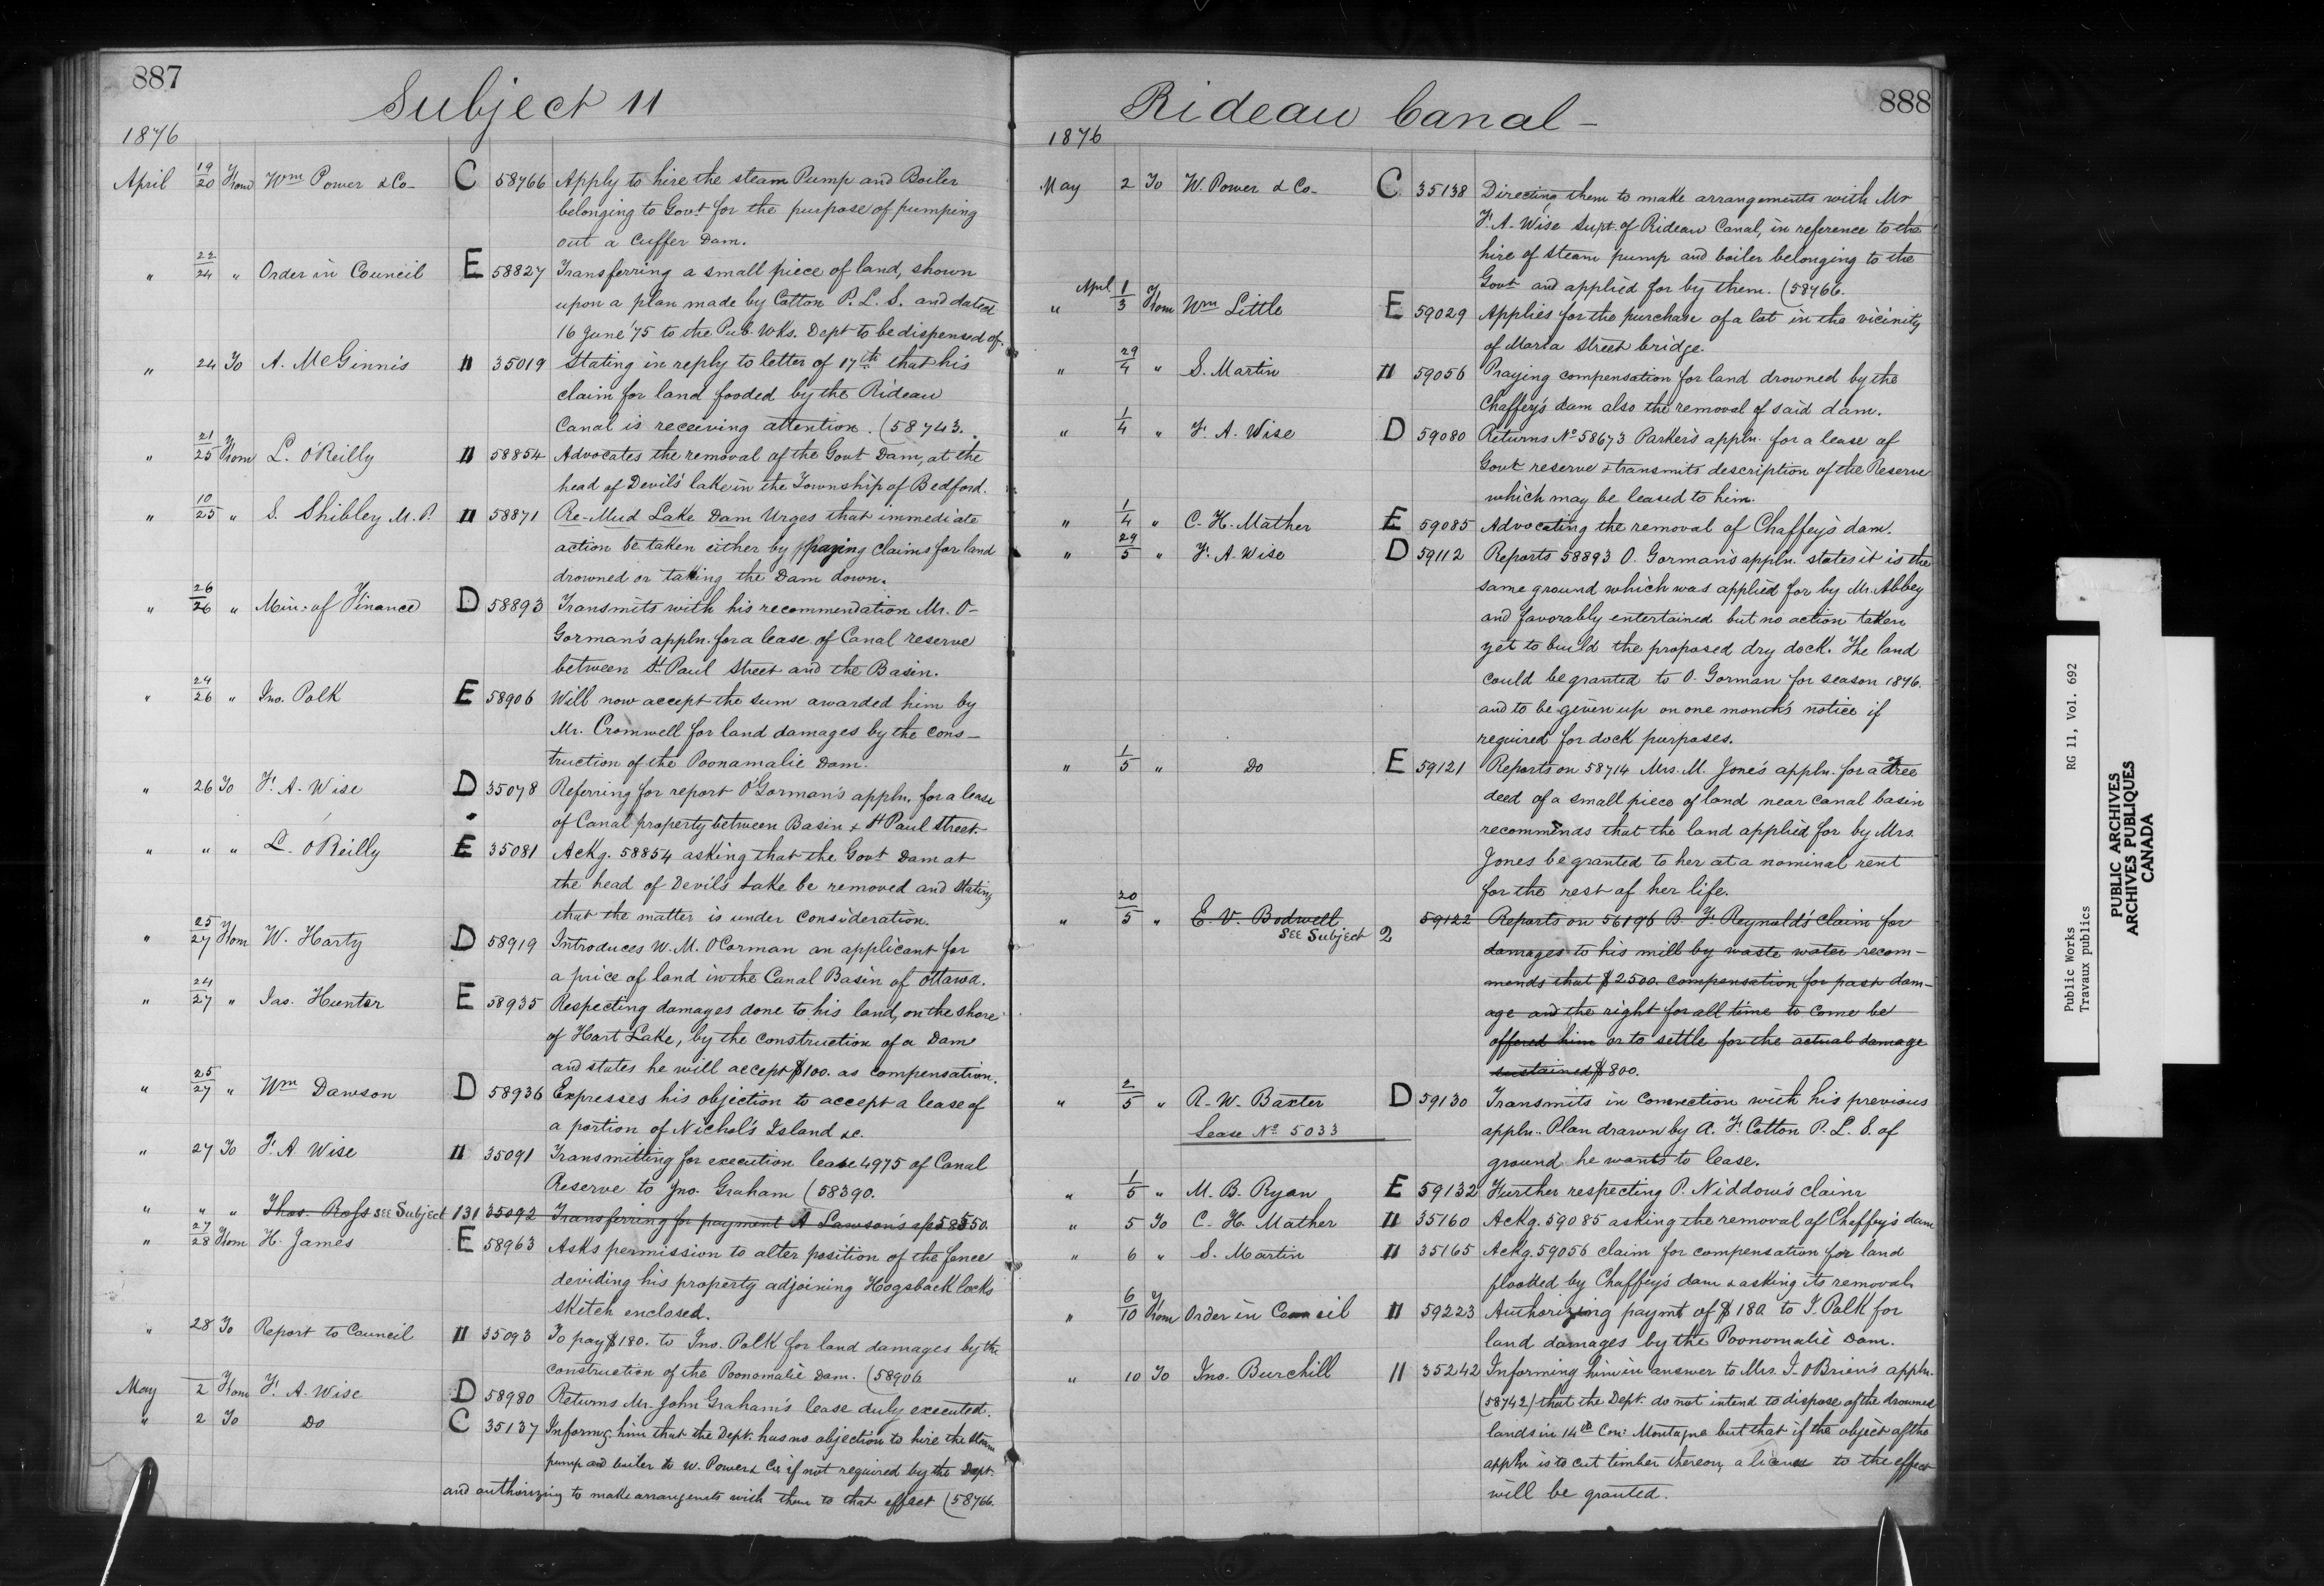 887
Subject 11
1876
April 19/20 From Wm Power & Co- C 58766 Apply to hire the steam Pump and Boiler
belonging to Govt for the purpose of pumping
out a Cuffer Dam.
" 22/24 " Order in Council E 58827 Transferring a small piece of land, shown
upon a plan made by Cotton P. L. S. and dated
16 June '75 to the Pub. Wks. Dept to be dispensed of.
" 24 To A. McGinnis " 35019 Stating in reply to letter of 17th that his
claim for land fooded by the Rideau
Canal is receiving attention. (58743.
" 21/25 From L. O'Reilly " 58854 Advocates the removal of the Govt Dam, at the
head of Devil's lake in the Township of Bedford.
" 10/25 " S. Shibley M.P. " 58871 Re-Mud Lake Dam Urges that immediate
action be taken either by paying claims for land
drowned or taking the Dam down.
" 26/26 " Min. of Finance D 58893 Transmits with his recommendation Mr. O-
Gorman's appln. for a lease of Canal reserve
between St. Paul Street and the Basin.
" 24/26 " Jno. Polk E 58906 Will now accept the sum awarded him by
Mr. Cromwell for land damages by the cons-
truction of the Poonamalie Dam.
" 26 To F. A. Wise D 35078 Referring for report O'Gorman's appln. for a lease
of Canal property between Basin & St Paul Street
" " " L. O'Reilly E 35081 Ackg. 58854 asking that the Govt Dam at
the head of Devil's Lake be removed and stating
that the matter is under consideration.
" 25/27 From W. Harty D 58919 Introduces W. M. O'Corman an applicant for
a price of land in the Canal Basin of Ottawa.
" 24/27 " Jas. Hunter E 58935 Respecting damages done to his land, on the shore
of Hart Lake, by the construction of a Dam
and states he will accept $100. as compensation.
" 25/27 " Wm Dawson D 58936 Expresses his objection to accept a lease of
a portion of Nichol's Island &c.
" 27 To F. A. Wise " 35091 Transmitting for execution lease 4975 of Canal
Reserve to Jno. Graham (58390.
" " " Thos. Ross SEE Subject 131 35092 Transferring for payment A Lawson's a/c 58550.
" 27/28 From H. James E 58963 Asks permission to alter position of the fence
deviding his property adjoining Hogsback locks
sketch enclosed.
" 28 To Report to Council " 35093 To pay $180. to Jno. Polk for land damages by the
construction of the Poonamalie Dam. (58906
May 2 From F. A. Wise D 58980 Returns Mr. John Graham's lease duly executed.
" 2 To Do C 35137 Informg him that the Dept. has no objection to hire the steam
pump and boiler to W. Power & Co if not required by the Dept.
and authorizing to make arrangements with them to that effect (58766.
888
Rideau Canal -
1876
May 2 To W. Power & Co- C 35138 Directing them to make arrangements with Mr
F. A. Wise Supt. of Rideau Canal, in reference to the
hire of steam pump and boiler belonging to the
Govt and applied for by them. (58766.
" April 1/3 From Wm Little E 59029 Applies for the purchase of a lot in the vicinity
of Maria Street bridge.
" 29/4 " S. Martin " 59056 Praying compensation for land drowned by the
Chaffey's dam also the removal of said dam.
" 1/4 " F. A. Wise D 59080 Returns No 58673 Parker's appln. for a lease of
Govt reserve & transmits description of the Reserve
which may be leased to him.
" 1/4 " C. H. Mather E 59085 Advocating the removal of Chaffey's dam.
" 29/5 " F. A. Wise D 59112 Reports 58893 O. Gorman's appln. states it is the
same ground which was applied for by Mr. Abbey
and favorably entertained but no action taken
yet to build the proposed dry dock. The land
could be granted to O. Gorman for season 1876.
and to be given up on one month's notice if
required for dock purposes.
" 1/5 " Do E 59121 Reports on 58714 Mrs. M. Jone's appln. for a free
deed of a small piece of land near canal basin
recommends that the land applied for by Mrs.
Jones be granted to her at a nominal rent
for the rest of her life.
" 20/5 " E. V. Bodwell 59122 Reports on 56196 B. F. Reynold's claim for
SEE Subject 2
damages to his mill by waste water recom-
mends that $2500. compensation for past dam-
age and the right for all time to come be
offered him or to settle for the actual damage
sustained $800.
" 2/5 " R. W. Baxter D 59130 Transmits in connection with his previous
Lease No 5033 appln. Plan drawn by A. F. Cotton P. L. S. of
ground he wants to lease.
" 1/5 " M. B. Ryan E 59132 Further respecting P. Niddow's claim
" 5 To C. H. Mather " 35160 Ackg. 59085 asking the removal of Chaffey's dam
" 6 " S. Martin " 35165 Ackg. 59056 claim for compensation for land
flooded by Chaffey's dam & asking its removal
" 6/10 From Order in Council " 59223 Authorizing paymt of $180 to J. Polk for
land damages by the Poonomalie Dam.
" 10 To Jno. Burchill " 35242 Informing him in answer to Mrs. J. O'Brien's appln.
(58742) that the Dept. do not intend to dispose of the drowned
lands in 14th Con: Montague but that if the object of the
appln is to cut timber thereon, a license to the effect
will be granted.
Public Works RG 11, Vol. 692
Travaux publics
PUBLIC ARCHIVES
ARCHIVES PUBLIQUES
CANADA